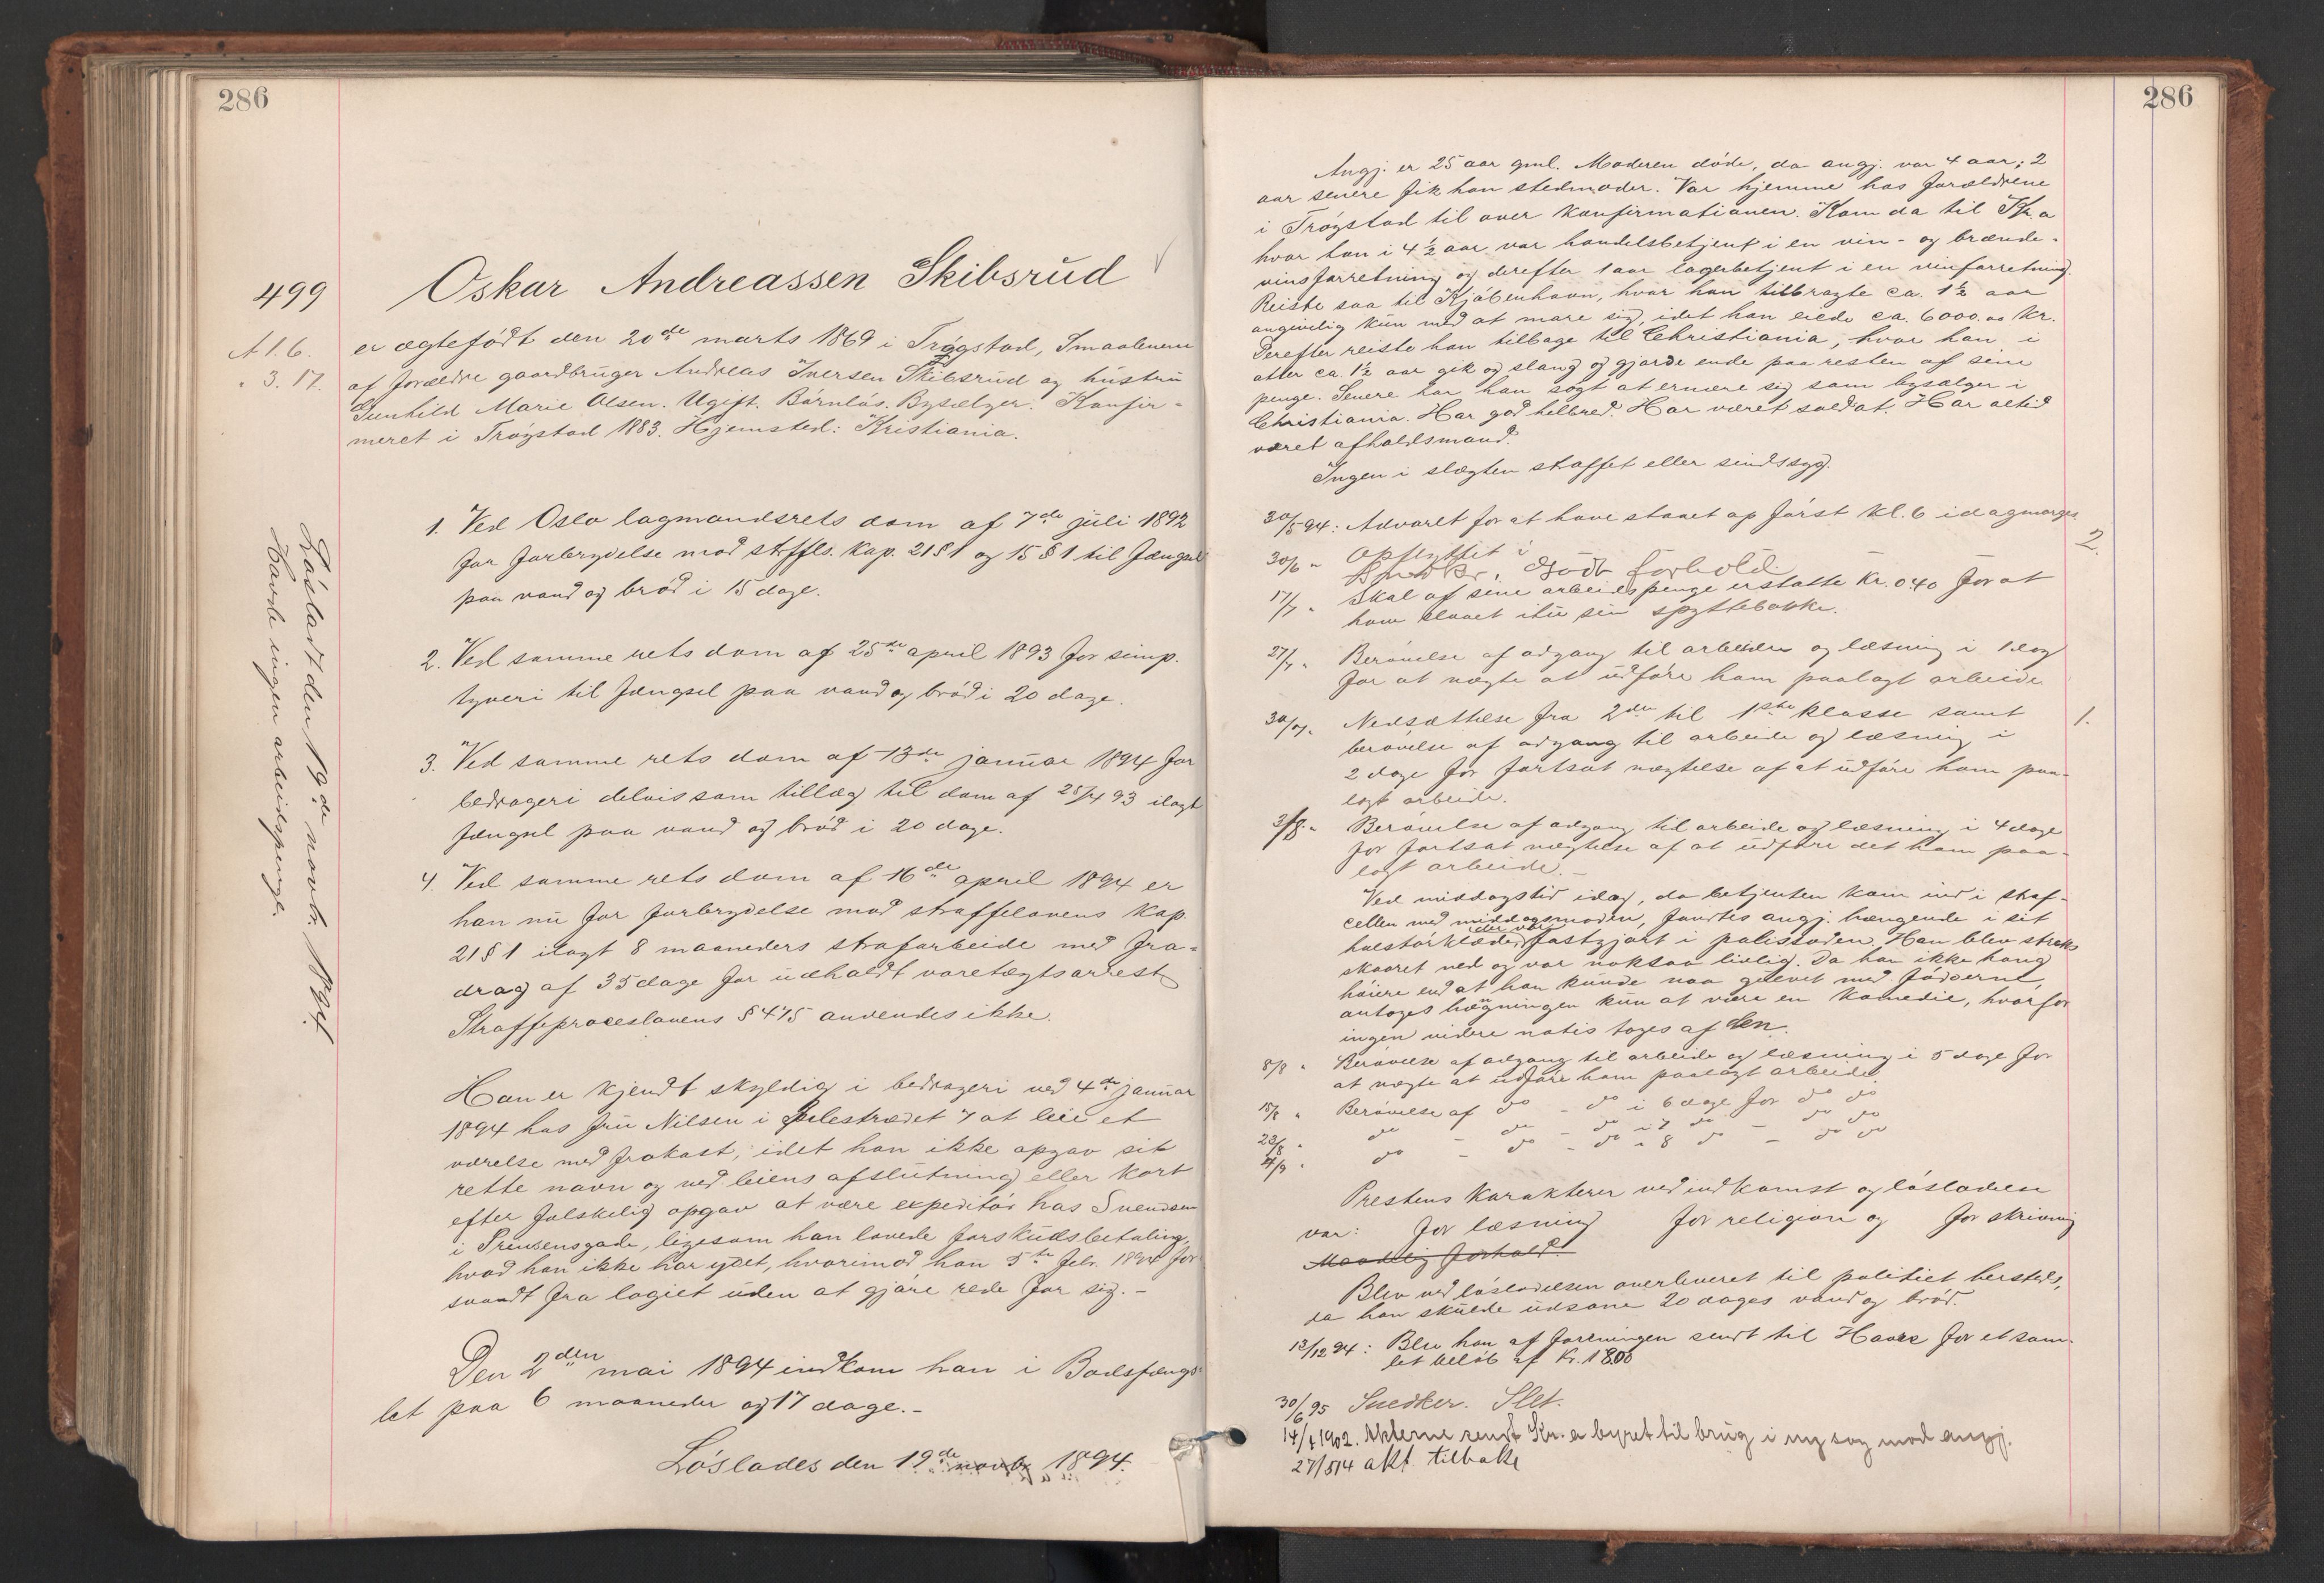 286
499
Oskar Andreassen Skibsrud
A 1. 6.
" 3. 17.
er ægtefødt den 20de marts 1869 i Trøgstad, Smaalenene
af forældre gaardbruger Andreas Iversen Skibsrud og hustru
Gunhild Marie Olsen. Ugift. Barnløs. Bysælger. Konfir-
meret i Trøgstad 1883. Hjemsted: Kristiania.
Løsladt den 19de novbr. 1894.
Havde ingen arbeidspenge.
1. Ved Oslo lagmandsrets dom af 7de juli 1892
for forbrydelse mod straffls. kap. 21 § 1 og 15 § 1 til fængsel
paa vand og brød i 15 dage.
2. Ved samme rets dom af 25de april 1893 for simp.
tyveri til fængsel paa vand og brød i 20 dage.
3. Ved samme rets dom af 13de januar 1894 for
bedrageri delvis som tillæg til dom af 25/4 93 ilagt
fængsel paa vand og brød i 20 dage.
4. Ved samme rets dom af 16de april 1894 er
han nu for forbrydelse mod straffelovens kap.
21 § 1 ilagt 8 maaneders strafarbeide med fra-
drag af 35 dage for udholdt varetægtsarrest
Straffeproceslovens § 475 anvendes ikke.
Han er kjendt skyldig i bedrageri ved 4de januar
1894 hos fru Nilsen i Pilestrædet 7 at leie et
værelse med frokost, idet han ikke opgav sit
rette navn og ved leiens afslutning eller kort
efter falskelig opgav at være expeditør hos Svendsen
i Prinsensgade, ligesom han lovede forskudsbetaling,
hvad han ikke har ydet, hvorimod han 5te febr. 1894 for
svandt fra logiet uden at gjøre rede for sig.-
Den 2den mai 1894 indkom han i Bodsfængs-
let paa 6 maaneder og 17 dage.-
Løslades den 19de novbr. 1894.
286
Angj. er 25 aar gml. Moderen døde, da angj. var 4 aar; 2
aar senere fik han stedmoder. Var hjemme hos forældrene
i Trøgstad til over konfirmationen. Kom da til Kr.a
hvor han i 4 ½ aar var handelsbetjent i en vin- og brænde-
vinsforretning og derefter 1 aar lagerbetjent i en vinforretning.
Reiste saa til Kjøbenhavn, hvor han tilbragte ca. 1 ½ aar
angivelig kun med at more sig, idet han eiede ca. 6000.00 kr.
Derefter reiste han tilbage til Christiania, hvor han i
atter ca. 1 ½ aar gik og slang og gjorde ende paa resten af sine
penge. Senere har han søgt at ernære sig som bysælger i
Christiania. Har god helbred. Har været soldat. Har altid
været afholdsmand.
Ingen i slægten straffet eller sindssyg.
30/5 94: Advaret for at have staaet op først kl. 6 idagmorges
30/6 " Opflyttet i
2.
Snedker. Godt forhold
17/7 " Skal af sine arbeidspenge erstatte kr. 0.40 for at
have slaaet itu sin spyttebakke.
27/7 " Berøvelse af adgang til arbeide og læsning i 1 dag
for at nægte at udføre ham paalagt arbeide
30/7 " Nedsættelse fra 2den til 1ste klasse samt 1.
berøvelse af adgang til arbeide og læsning i
2 dage for fortsat nægtelse af at udføre ham paa-
lagt arbeide.
3/8 " Berøvelse af adgang til arbeide og læsning i 4 dage
for fortsat nægtelse af at udføre det ham paa-
lagt arbeide.-
Ved middagstid idag, da betjenten kom ind i straf-
cellen med middagsmaden, fandtes angj. hængende i sit
halstørklæde, der var fastgjort i palisaden. Han blev straks
skaaret ned og var noksaa livlig. Da han ikke hang
høiere end at han kunde naa gulvet med fødderne,
antoges hægningen kun at være en komedie, hvorfor
ingen videre notis toges af den.
8/8 " Berøvelse af adgang til arbeide og læsning i 5 dage for
at nægte at udføre ham paalagt arbeide
15/8 " Berøvelse af do - do i 6 dage for do do
23/8 " do - do - do i 7 do - do do
4/9 " do - do - do " 8 do - do do
Prestens karakterer ved indkomst og løsladelse
var: for læsning for religion og for skrivning
Maadelig forhold.
Blev ved løsladelsen overleveret til politiet hersteds,
da han skulde udsone 20 dages vand og brød.
13/12 94: Blev han af foreningen sendt til Havre for et sam-
let beløb af kr. 18.00
30/6 95 Snedker. Slet.
14/4 1902. Akterne sendt Kr.a byret til brug i ny sag mod angj.
27/5 14 akt tilbake